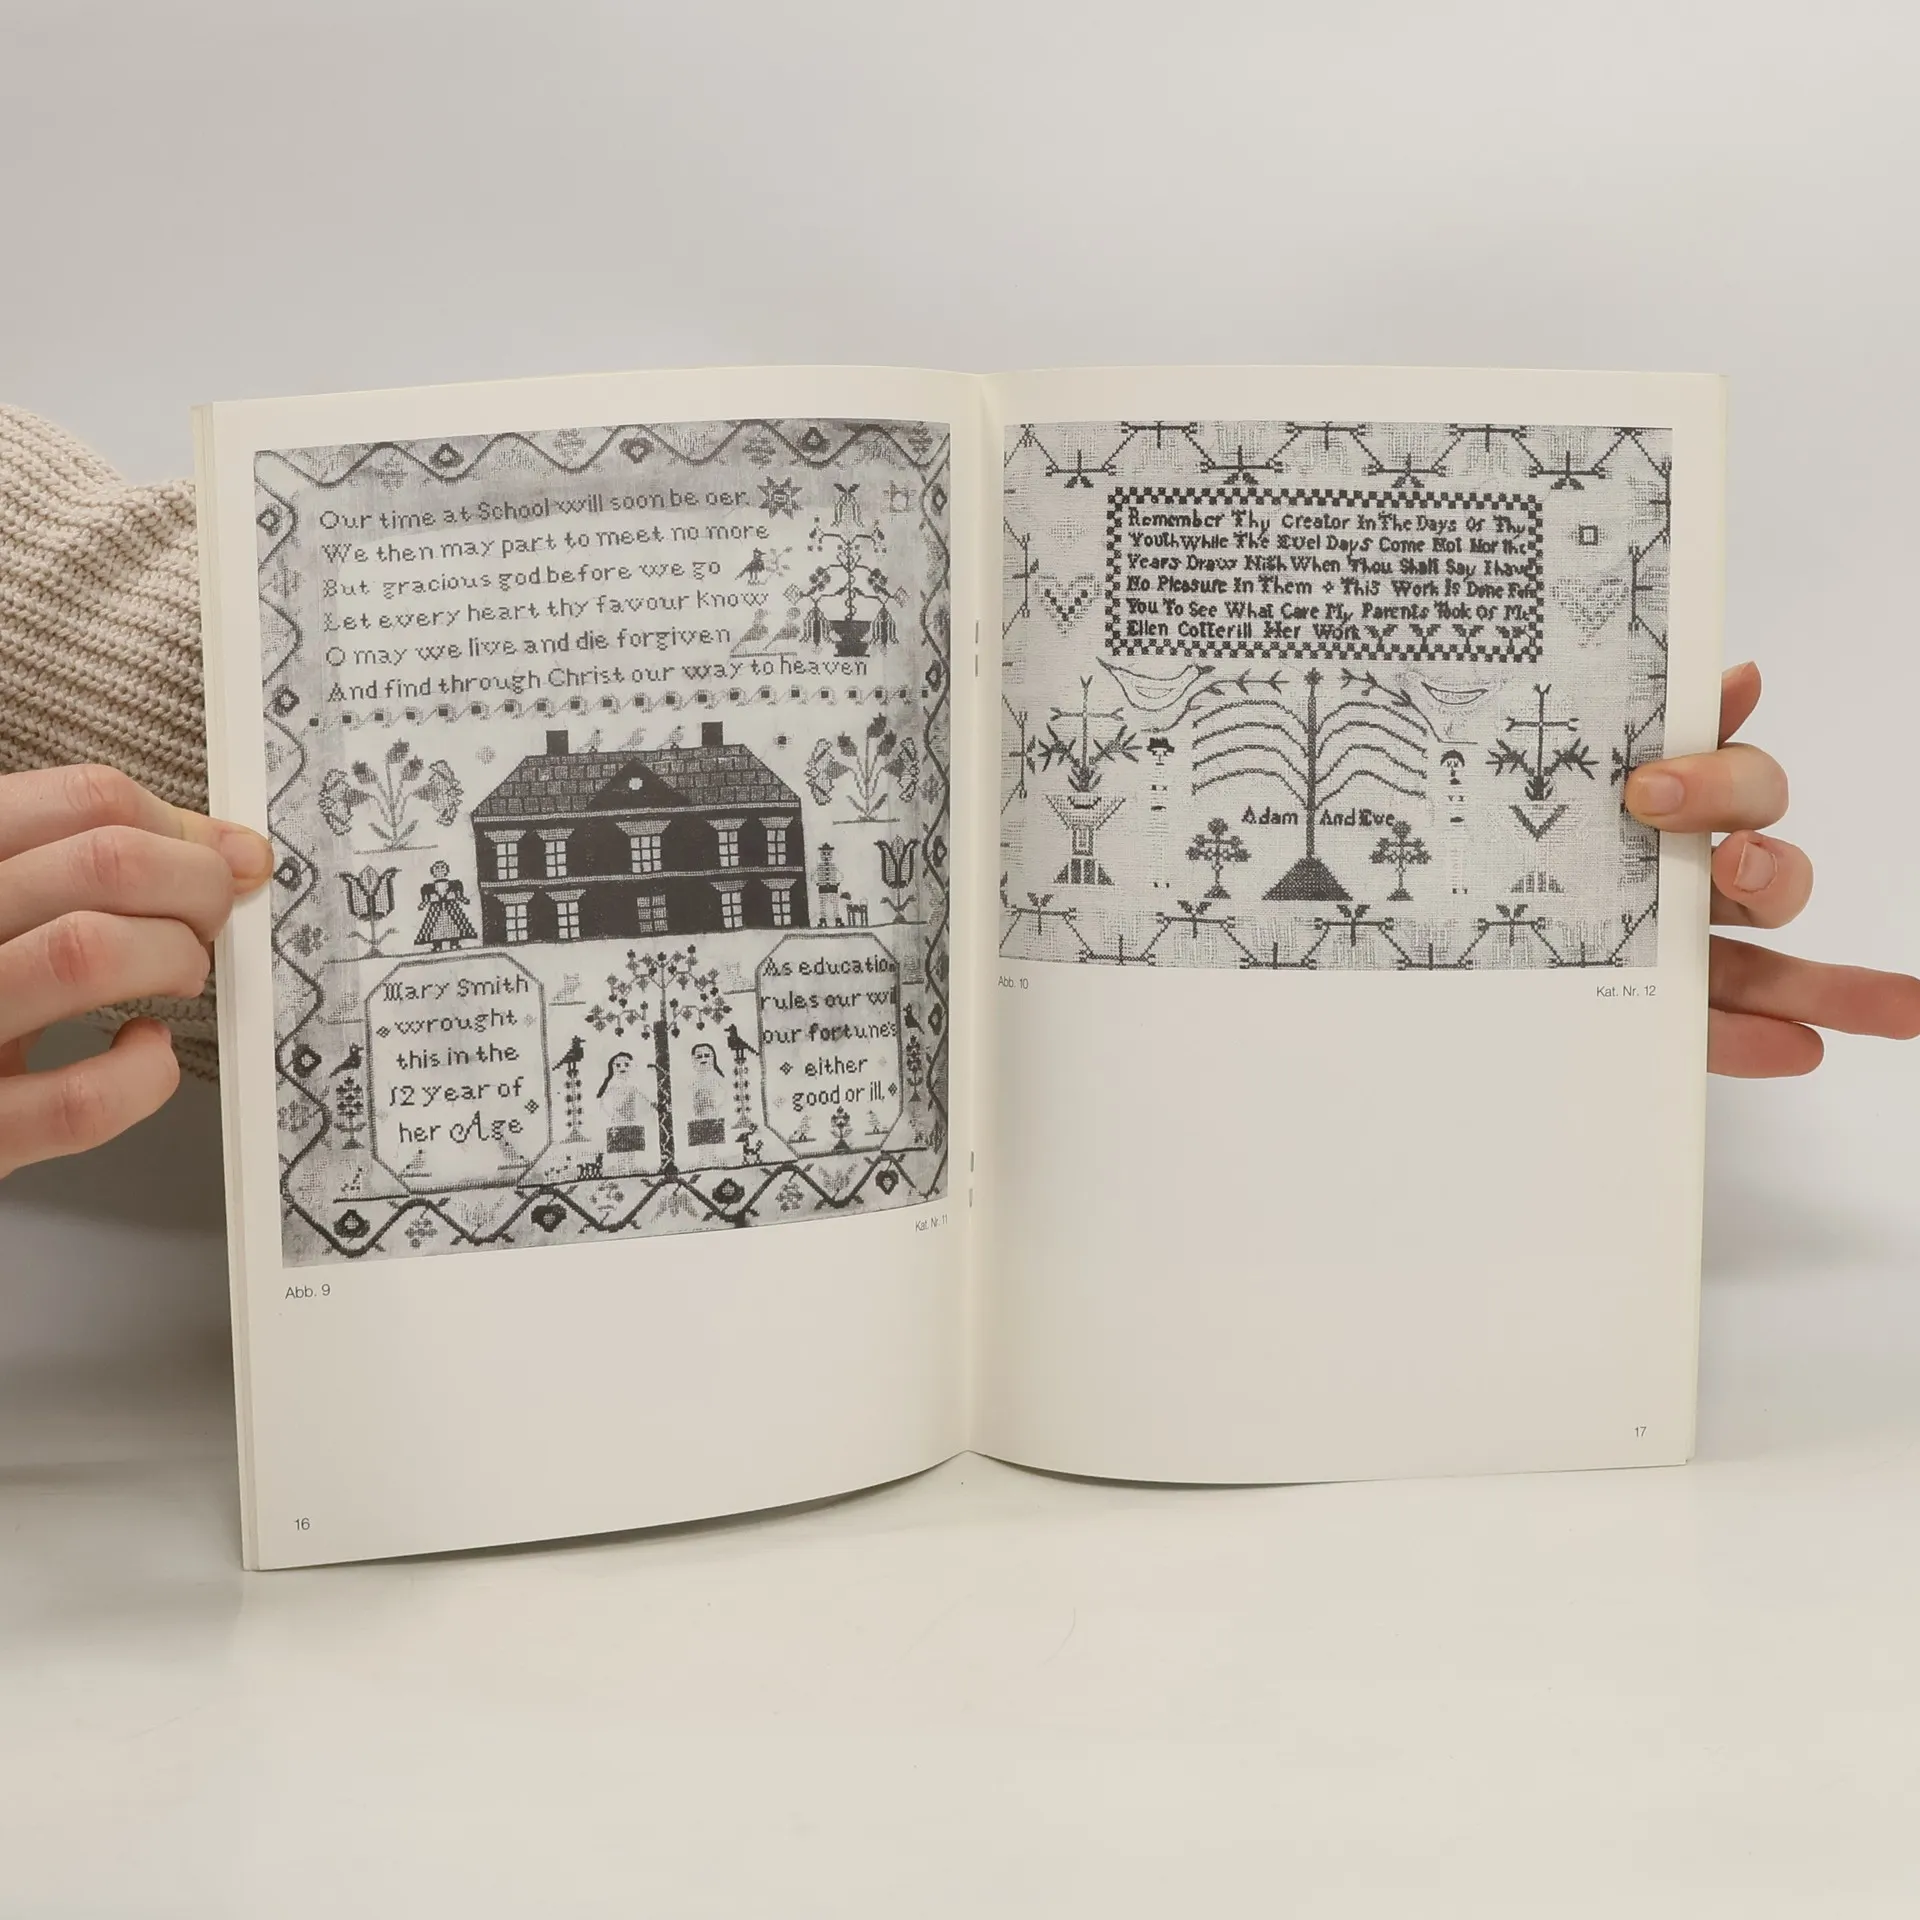 Our time at School will soon be oer.
We then may part to meet no more
But gracious god before we go
Let every heart thy favour know
O may we live and die forgiven
And find through Christ our way to heaven
Mary Smith
wrought
this in the
12 year of
her Age
As education
rules our wil
our fortune's
either
good or ill,
Abb. 9
Kat. Nr. 11
16
Remember Thy Creator In The Days Of Thy
Youth While The Evel Days Come Not Nor the
Years Draw Nish When Thou Shall Say I have
No Pleasure In Them + This Work Is Done For
You To See What Care My Parents Took Of Me
Ellen Cotterill Her Work
Adam And Eve
Abb. 10
Kat. Nr. 12
17